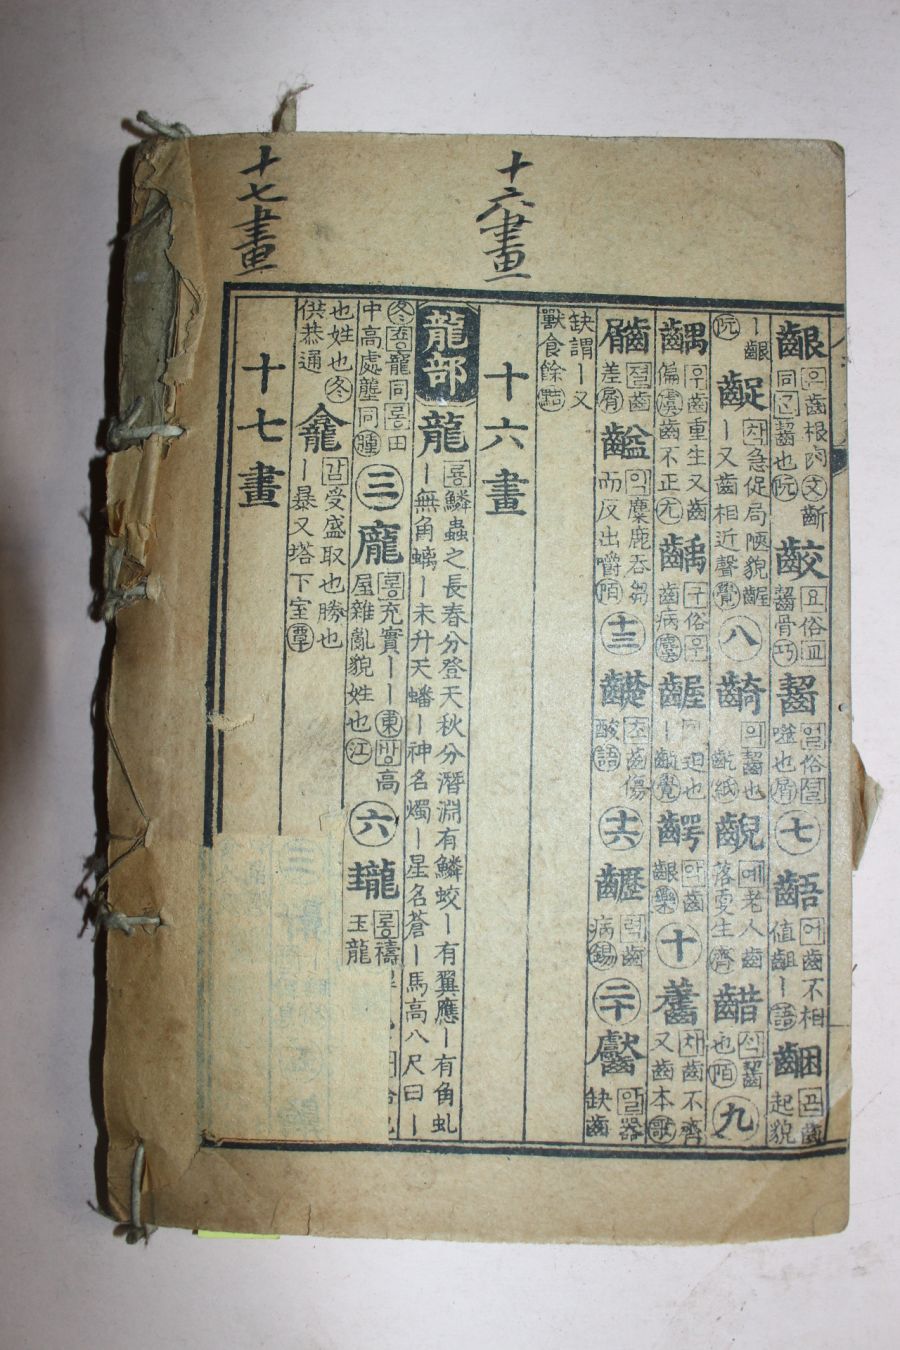 十六畫
十七畫
齦 은 齒根肉文齗同곤齧也阮 齩 요俗교齧骨巧 齧 열俗설噬也屑 七 齬 어齒不相値齟ー語 齫 곤齒起貌
阮 ー齦 齪 착急促局陿貌齷ー又齒相近聲覺 八 齮 의齧也齕紙 齯 예老人齒落更生齊 齰 색齧也陌 九
齵 우齒重生又偏虞齒不正尤 齲 구俗우齒病麌 齷 迫也ー齪覺 齶 악齒齦藥 十 齹 채齒不齊又齒本歌
절齒差屑 齸 익麋鹿呑芻而反出嚼陌 十三 齼 초齒傷酸語 十六 력齒病錫 二十 齾 알器缺齒
缺謂ー又獸食餘黠
十六畫
龍部 龍 룡鱗蟲之長春分登天秋分潛淵有鱗蛟ー有翼應ー有角虬ー無角螭ー未升天蟠ー神名燭ー星名蒼ー馬高八尺曰ー
冬총寵同롱田中高處壟同腫 三 龐 롱充實ーー東방高屋雜亂貌姓也江 六 瓏 롱禱玉龍
也姓也冬供恭通 龕 감受盛取也勝也ー暴又塔下室覃
十七畫